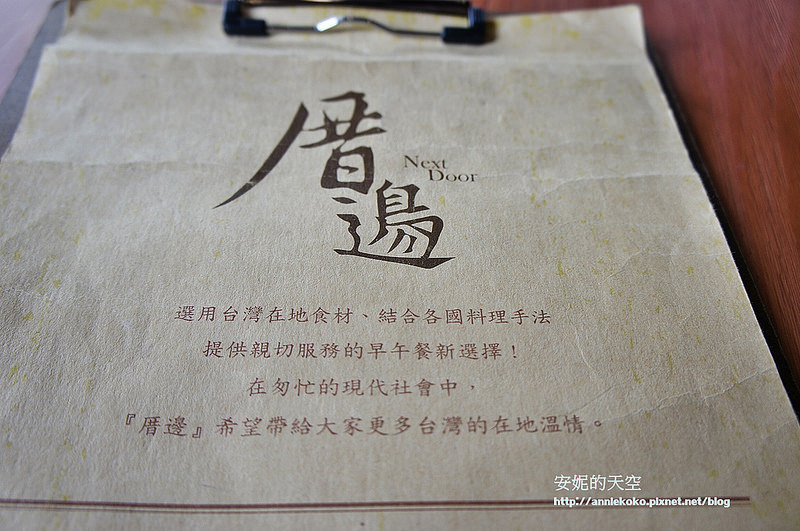 厝邊
Next
Door
選用台灣在地食材、結合各國料理手法
提供親切服務的早午餐新選擇！
在匆忙的現代社會中，
『厝邊』希望帶給大家更多台灣的在地溫情。
安妮的天空
http://anniekoko.pixnet.net/blog